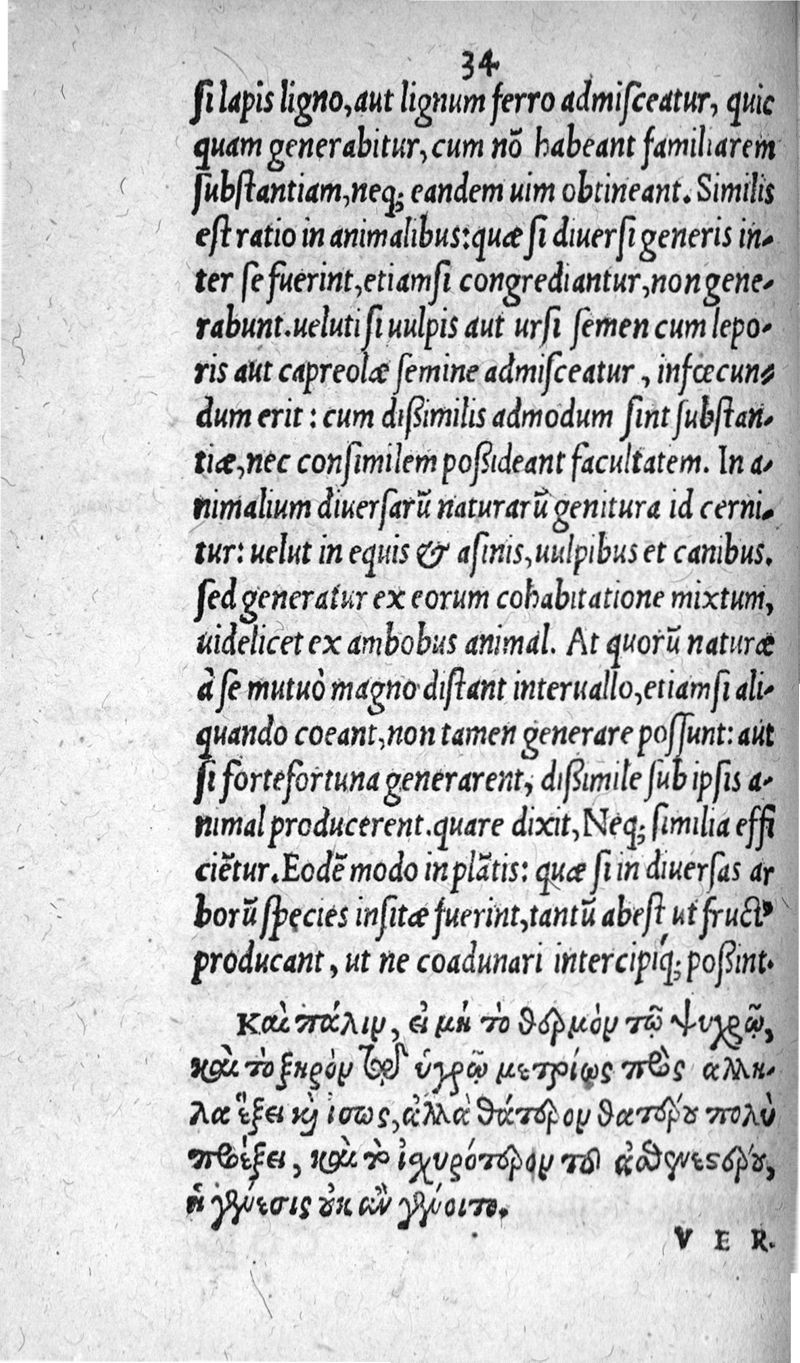 34
si lapis ligno, aut lignum ferro admisceatur, quic
quam generabitur, cum nõ habeant familiarem
substantiam, neq; eandem uim obtineant. Similis
est ratio in animalibus: quæ si diuersi generis in-
ter se fuerint, etiamsi congrediantur, non gene-
rabunt. ueluti si uulpis aut ursi semen cum lepo-
ris aut capreolæ semine admisceatur, infœcun-
dum erit: cum dißimilis admodum sint substan-
tiæ, nec consimilem poßideant facultatem. In a-
nimalium diuersarũ naturarũ genitura id cerni-
tur: uelut in equis & asinis, uulpibus et canibus.
sed generatur ex eorum cohabitatione mixtum,
uidelicet ex ambobus animal. At quorũ naturæ
à se mutuò magno distant interuallo, etiamsi ali-
quando coeant, non tamen generare possunt: aut
si fortefortuna generarent, dißimile sub ipsis a-
nimal producerent. quare dixit, Neq; similia effi
ciẽtur. Eodẽ modo in plãtis: quæ si in diuersas ar
borũ species insitæ fuerint, tantũ abest ut fruct⁹
producant, ut ne coadunari intercipiq́; poßint.
Καὶ πάλιν, εἰ μὴ τὸ θερμὸν τῷ ψυχρῷ,
καὶ τὸ ξηρὸν τῷ ὑγρῷ μετρίως πρὸς αλλη-
λα ἕξει κὶ ἰσως, ἀλλὰ θάτερον θατέρου πολὺ
προέξει, καὶ τὸ ἰσχυρότερον τοῦ ἀσθενεστέρου,
ἡ γένεσις ουκ ἂν γένοιτο.
VER-